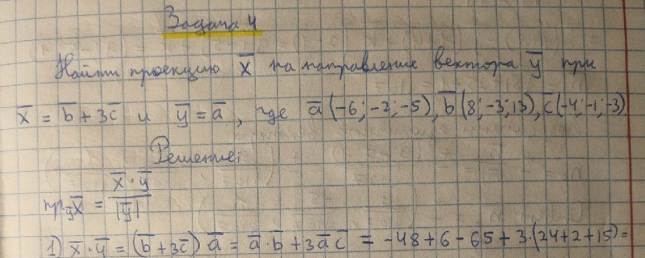 Задача 4
Найти проекцию x̅ на направление вектора y̅ при
x̅ = b̅ + 3c̅ и y̅ = a̅, где a̅ (-6; -2; -5), b̅ (8; -3; 13), c̅ (-4; -1; -3)
Решение:
пр_y̅ x̅ = x̅ · y̅ / |y̅|
1) x̅ · y̅ = (b̅ + 3c̅) a̅ = a̅ · b̅ + 3 a̅ c̅ = -48 + 6 - 65 + 3 · (24 + 2 + 15) =